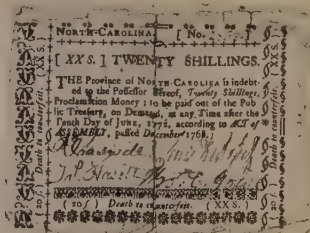 NORTH-CAROLINA. [ No. ]
[ XX S. ] TWENTY SHILLINGS.
THE Province of NORTH-CAROLINA is indebt-
ed to the Possessor hereof, Twenty Shillings,
Proclamation Money; to be paid out of the Pub
lic Treasury, on Demand, at any Time after the
Tenth Day of June, 1772, according to ACT of
ASSEMBLY, passed December 1768.
( 20/ ) Death to counterfeit. ( XX S. )
( 20/ ) Death to counterfeit. XX S.
( 20/ ) Death to counterfeit. ( XX S. )